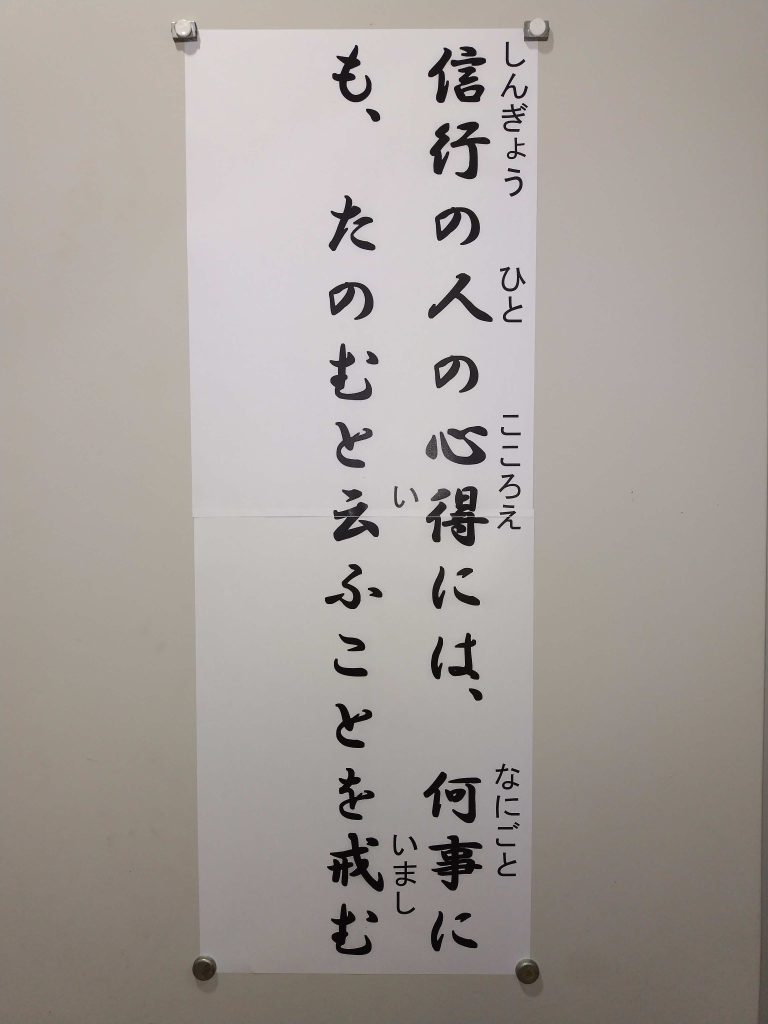 信行の人の心得には、何事に
しんぎょう ひと こころえ なにごと
も、たのむと云ふことを戒む
い いまし